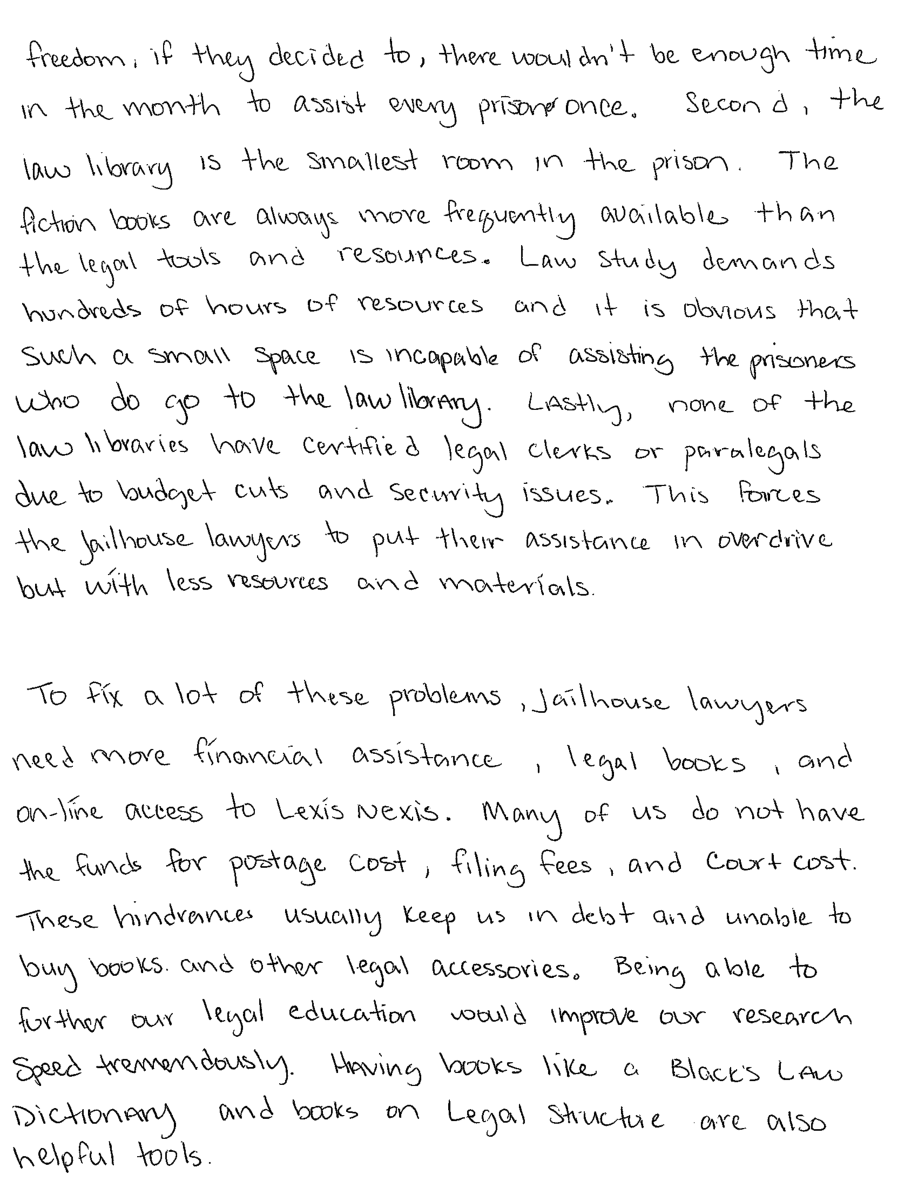 freedom, if they decided to, there wouldn't be enough time
in the month to assist every prisoner once. Second, the
law library is the smallest room in the prison. The
fiction books are always more frequently available than
the legal tools and resources. Law study demands
hundreds of hours of resources and it is obvious that
such a small space is incapable of assisting the prisoners
who do go to the law library. Lastly, none of the
law libraries have certified legal clerks or paralegals
due to budget cuts and security issues. This forces
the jailhouse lawyers to put their assistance in overdrive
but with less resources and materials.
To fix a lot of these problems, jailhouse lawyers
need more financial assistance, legal books, and
on-line access to Lexis Nexis. Many of us do not have
the funds for postage cost, filing fees, and court cost.
These hindrances usually keep us in debt and unable to
buy books. and other legal accessories. Being able to
further our legal education would improve our research
speed tremendously. Having books like a Black's Law
Dictionary and books on Legal Structue are also
helpful tools.